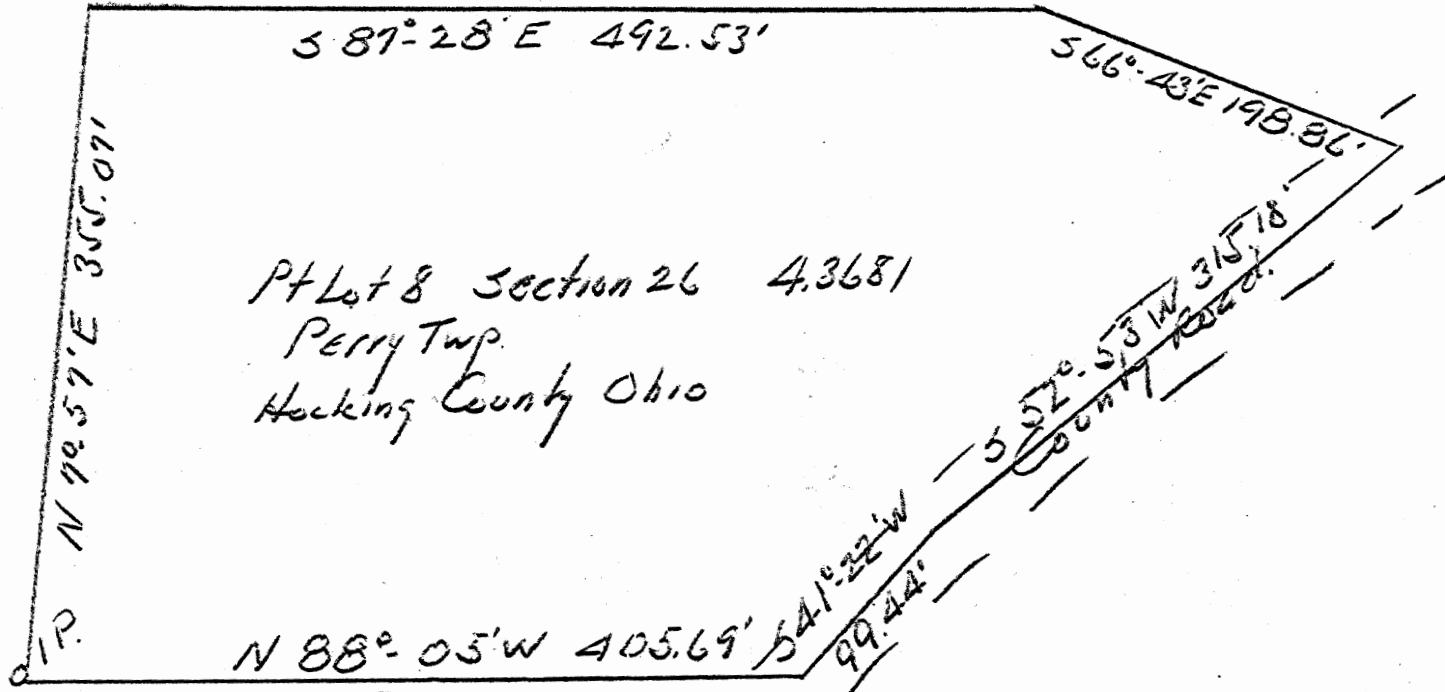 S 87°-28' E 492.53'
S 66°-43'E 198.86'
N 7°-57'E 355.07'
Pt Lot 8 Section 26 4.3681
Perry Twp.
Hocking County Ohio
S 52°-53'W 315.18'
County Road.
S 41°-22'W
99.44'
N 88°-05'W 405.69'
I.P.